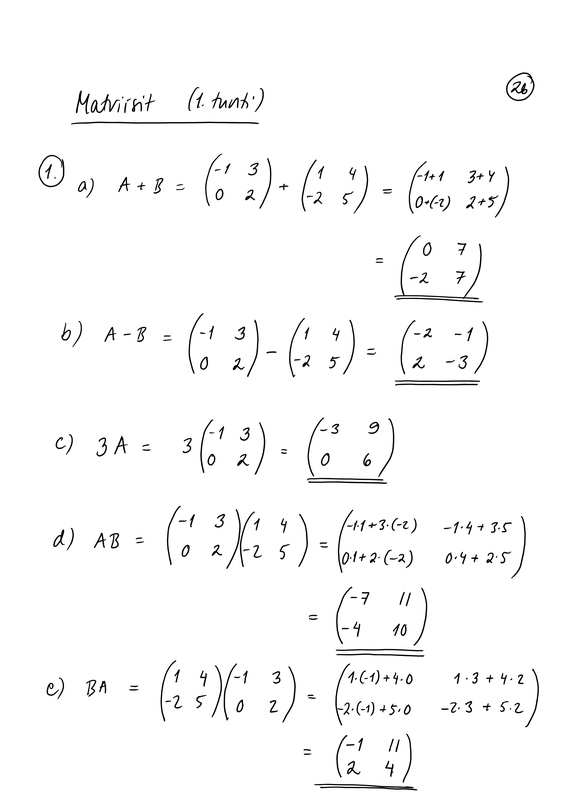 26
Matriisit (1. tunti)
1. a) A + B = (-1 3; 0 2) + (1 4; -2 5) = (-1+1 3+4; 0+(-2) 2+5)
= (0 7; -2 7)
b) A - B = (-1 3; 0 2) - (1 4; -2 5) = (-2 -1; 2 -3)
c) 3A = 3(-1 3; 0 2) = (-3 9; 0 6)
d) AB = (-1 3; 0 2)(1 4; -2 5) = (-1·1+3·(-2) -1·4+3·5; 0·1+2·(-2) 0·4+2·5)
= (-7 11; -4 10)
e) BA = (1 4; -2 5)(-1 3; 0 2) = (1·(-1)+4·0 1·3+4·2; -2·(-1)+5·0 -2·3+5·2)
= (-1 11; 2 4)